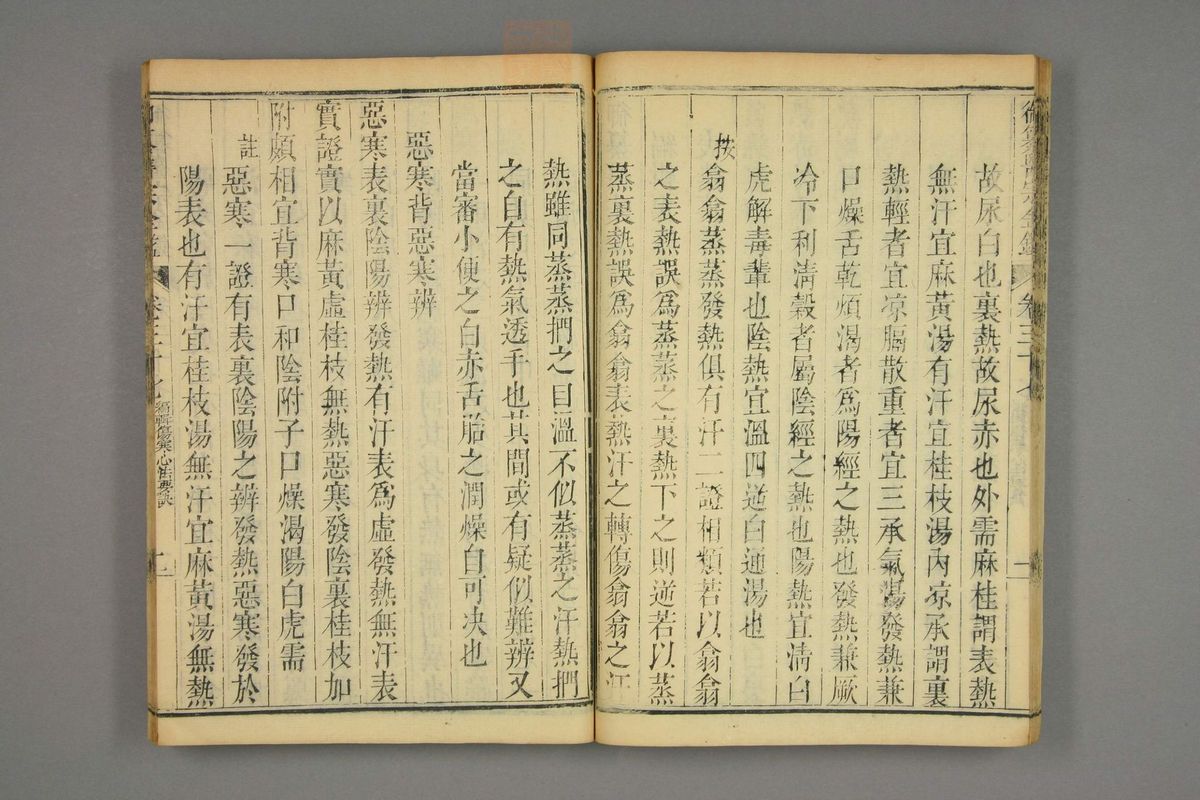 御纂醫宗金鑑 卷三十七
故尿白也裏熱故尿赤也外需麻桂謂表熱
無汗宜麻黃湯有汗宜桂枝湯內凉承謂裏
熱輕者宜凉膈散重者宜三承氣湯發熱兼
口燥舌乾煩渴者爲陽經之熱也發熱兼厥
冷下利清穀者屬陰經之熱也陽熱宜清白
虎解毒輩也陰熱宜溫四逆白通湯也
按翕翕蒸蒸發熱俱有汗二證相類若以翕翕
之表熱誤爲蒸蒸之裏熱下之則逆若以蒸
蒸裏熱誤爲翕翕表熱汗之轉傷翕翕之汗
熱雖同蒸蒸捫之曰溫不似蒸蒸之汗熱捫
之自有熱氣透手也其間或有疑似難辨又
當審小便之白赤舌胎之潤燥自可决也
惡寒背惡寒辨
惡寒表裏陰陽辨發熱有汗表爲虛發熱無汗表
實證實以麻黃虛桂枝無熱惡寒發陰裏桂枝加
附頗相宜背寒口和陰附子口燥渴陽白虎需
註惡寒一證有表裏陰陽之辨發熱惡寒發於
陽表也有汗宜桂枝湯無汗宜麻黃湯無熱
卷三十七 編輯傷寒心法要訣